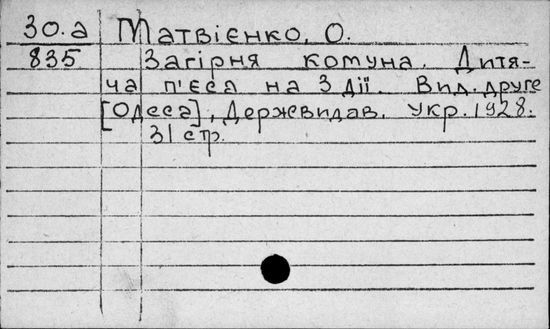 30.а Матвієнко, О.
835 Загірня комуна. Дитя-
ча п'єса на 3 дії. Вид. друге
[Одеса], Держвидав. Укр. 1928.
31 стр.